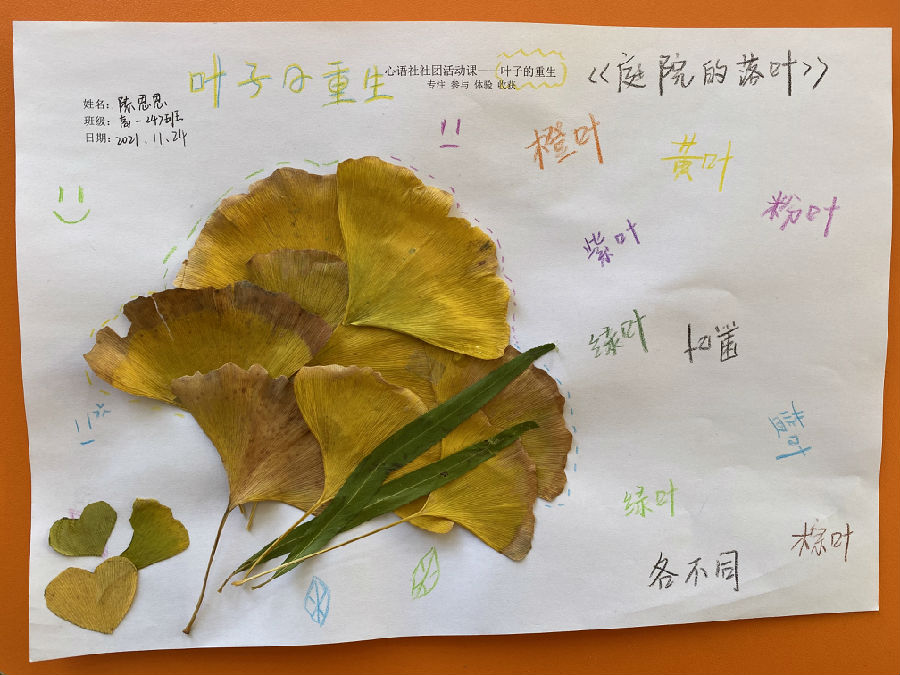 叶子の重生
心语社社团活动课——叶子的重生
专注 参与 体验 收获
《庭院的落叶》
姓名：
班级：高一247班
日期：2021.11.24
橙叶
黄叶
粉叶
紫叶
绿叶
蓝叶
绿叶
棕叶
各不同